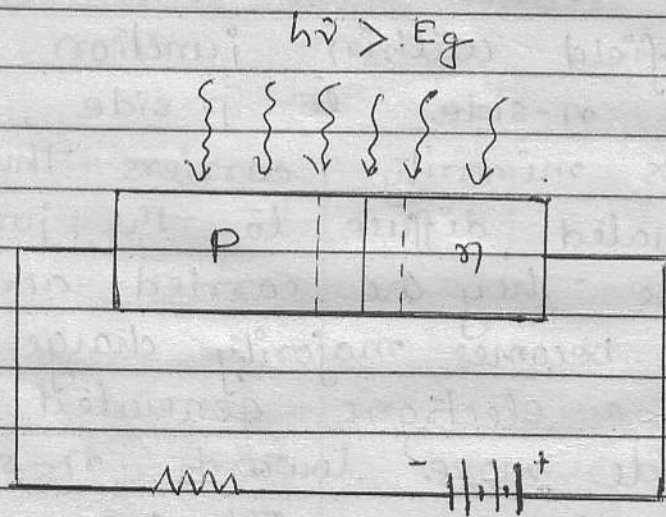 hν > Eg
P n
- +